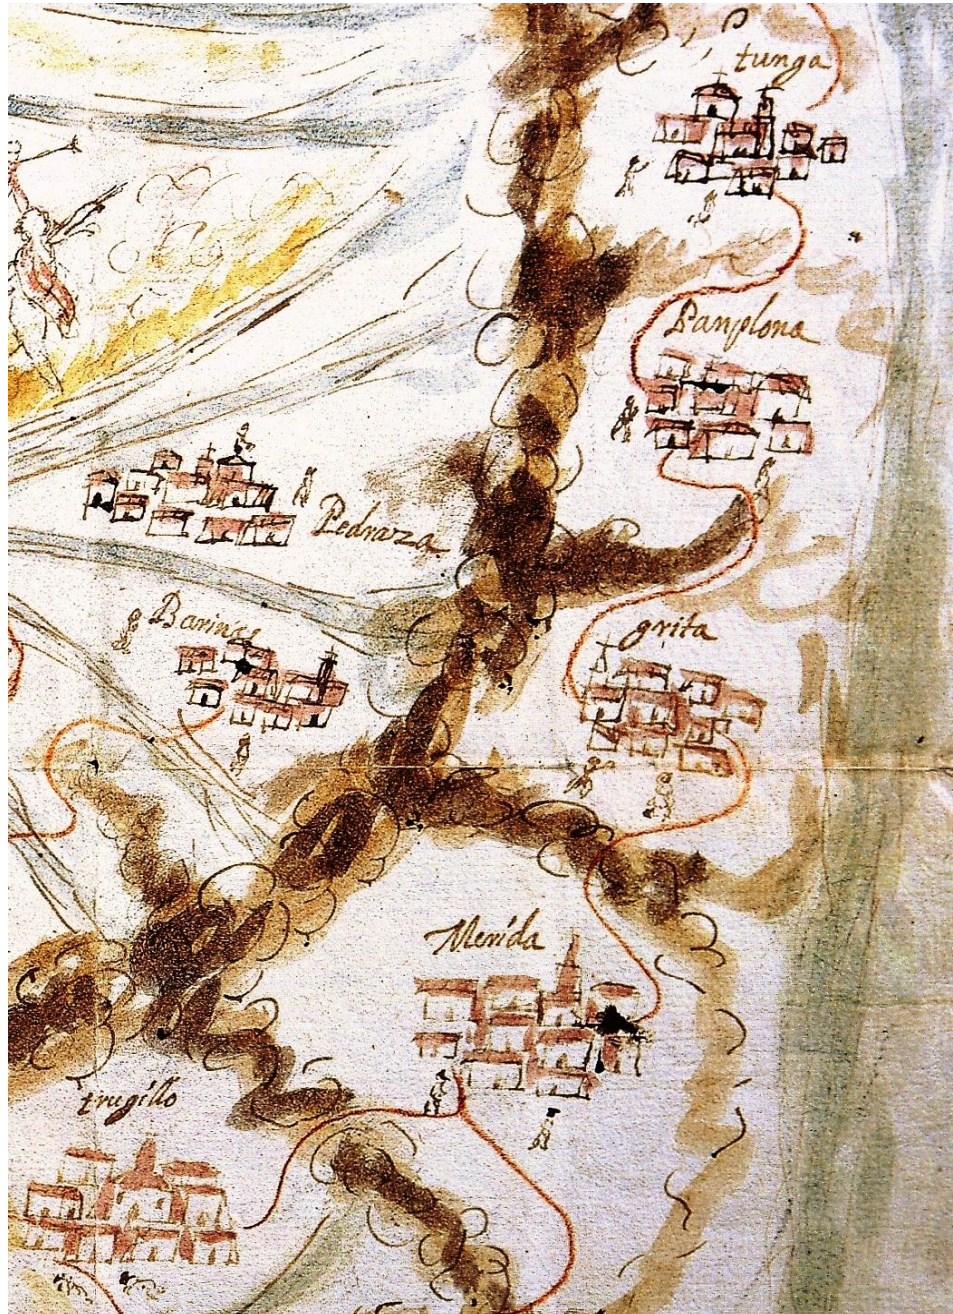 tunga
Panplona
Pedraza
Barinas
grita
Merida
trugillo